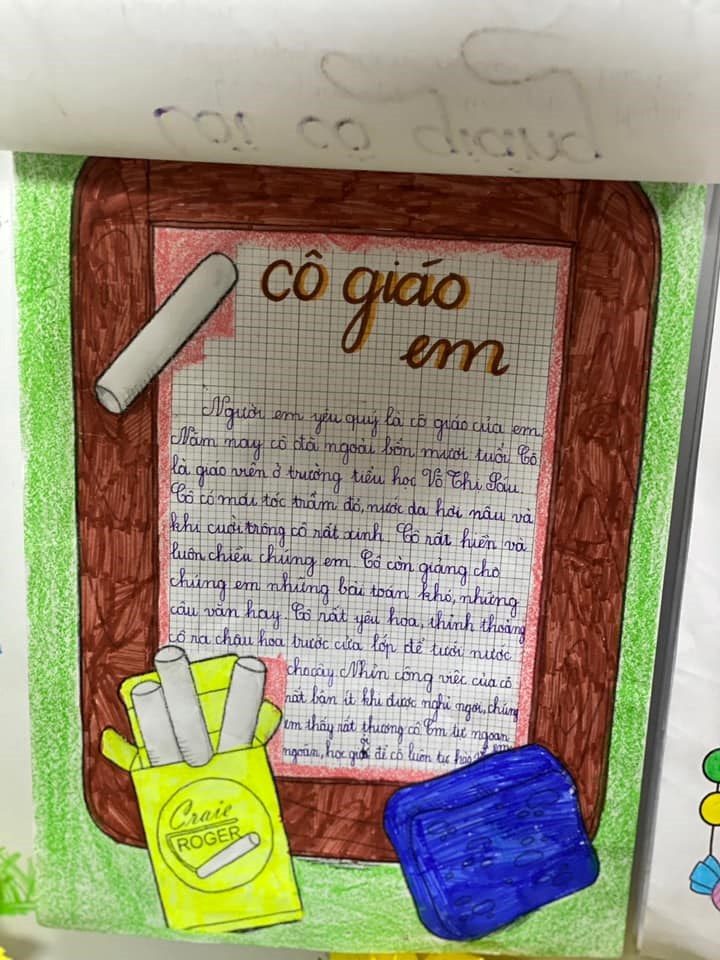 Lời cô giảng
cô giáo
em
Người em yêu quý là cô giáo của em.
Năm nay cô đã ngoài bốn mươi tuổi. Cô
là giáo viên ở trường tiểu học Võ Thị Sáu.
Cô có mái tóc trầm đỏ, nước da hơi nâu và
khi cười trông cô rất xinh. Cô rất hiền và
luôn chiều chúng em. Cô còn giảng cho
chúng em những bài toán khó, những
câu văn hay. Cô rất yêu hoa, thỉnh thoảng
cô ra chậu hoa trước cửa lớp để tưới nước
cho cây. Nhìn công việc của cô
rất bận ít khi được nghỉ ngơi, chúng
em thấy rất thương cô. Em sẽ ngoan
ngoãn, học giỏi để cô luôn tự hào
Craie
ROGER